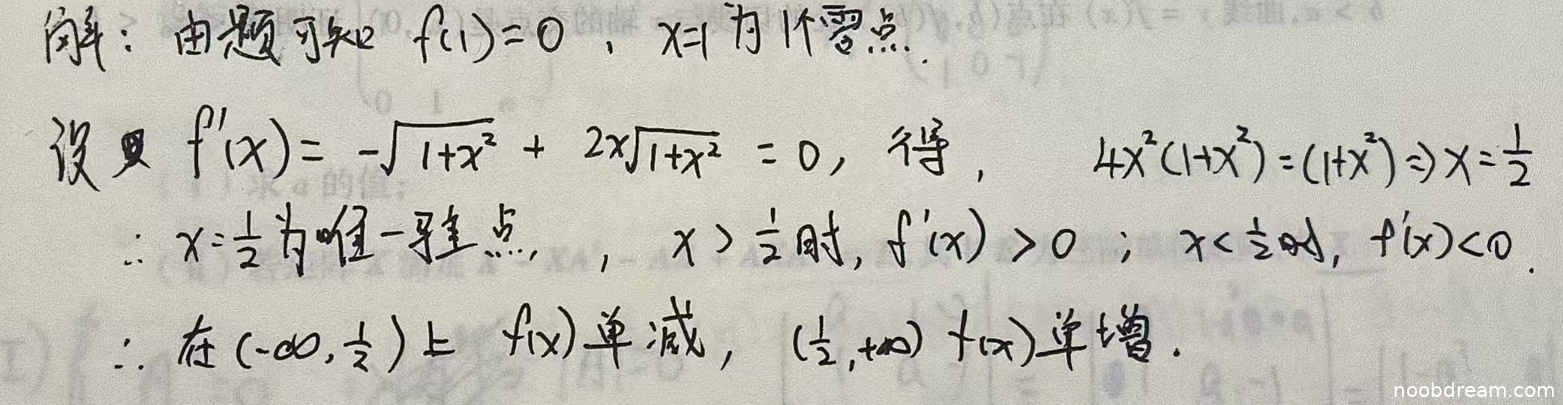 解：由题可知 f(1)=0，x=1为1个零点.
设 f'(x)= -√(1+x²) + 2x√(1+x²) = 0，得， 4x²(1+x²)=(1+x²)⇒x=1/2
∴ x=1/2为唯一驻点，x>1/2时，f'(x)>0；x<1/2时，f'(x)<0.
∴ 在(-∞,1/2)上 f(x)单减，(1/2,+∞) f(x)单增.
noobdream.com